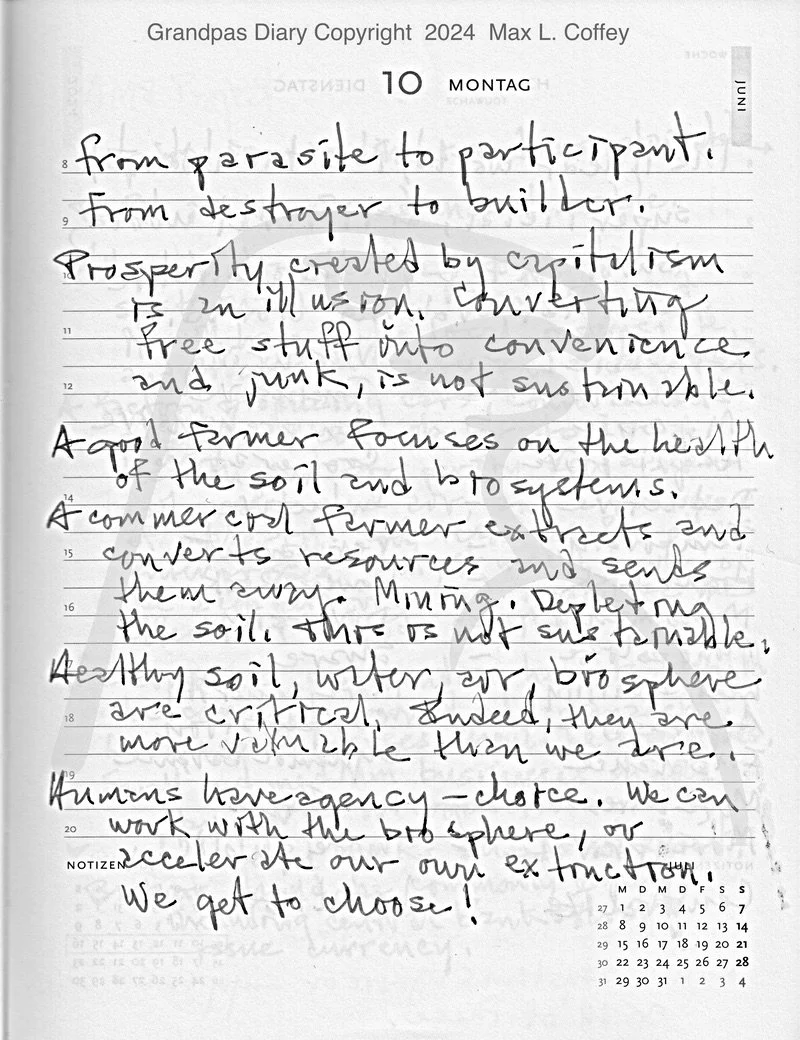 Grandpas Diary Copyright 2024 Max L. Coffey
10 MONTAG
JUNI
8 from parasite to participant.
9 From destroyer to builder.
Prosperity created by capitalism
is an illusion. Converting
11 free stuff into convenience
12 and junk, is not sustainable.
A good farmer focuses on the health
of the soil and biosystems.
14
A commercial farmer extracts and
15 converts resources and sends
them away. Mining. Depleting
16 the soil. This is not sustainable.
Healthy soil, water, air, biosphere
18 are critical. Indeed, they are
more valuable than we are.
19
Humans have agency – choice. We can
20 work with the biosphere, or
NOTIZEN accelerate our own extinction.
We get to choose!
JULI
M D M D F S S
27 1 2 3 4 5 6 7
28 8 9 10 11 12 13 14
29 15 16 17 18 19 20 21
30 22 23 24 25 26 27 28
31 29 30 31 1 2 3 4